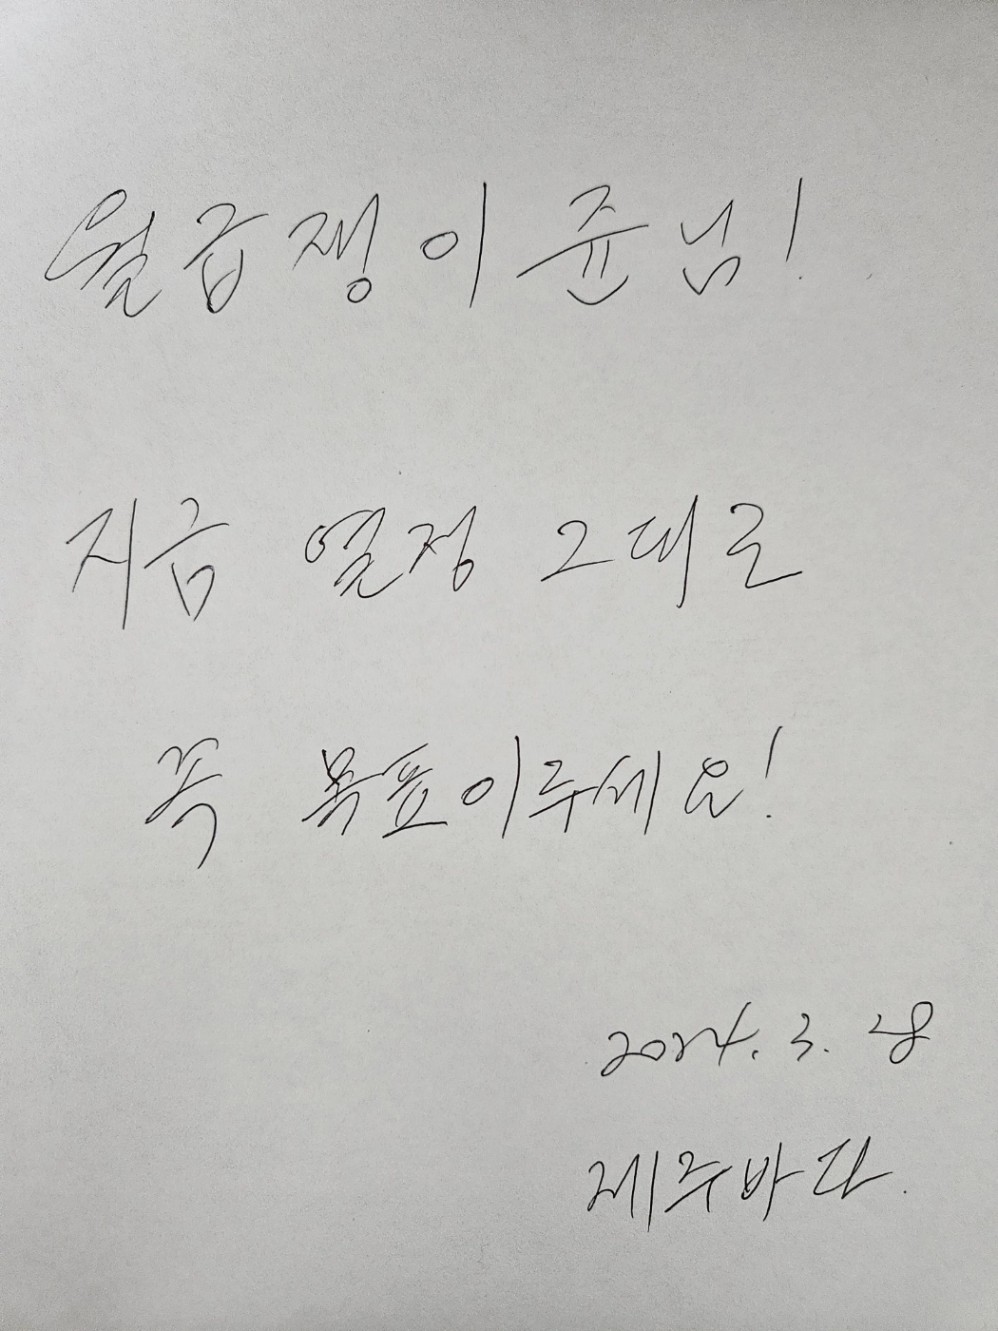 월급쟁이쥰님!
지금 열정 그대로
꼭 목표이루세요!
2024. 3. 28
제주바다.